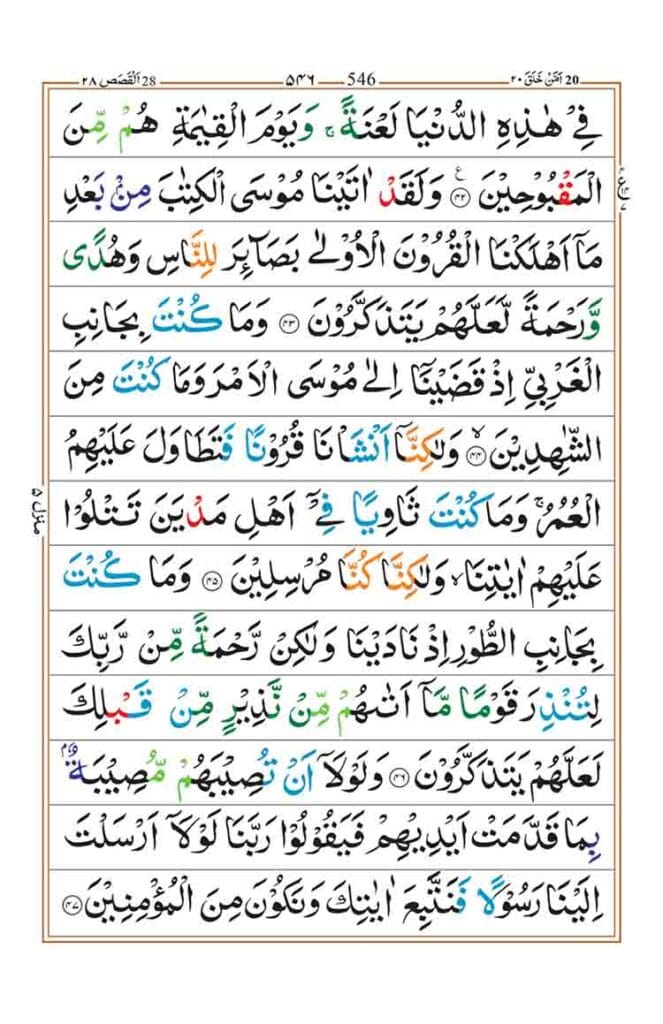 20 اَمَّنْ خَلَقَ ٢٠ ٥٤٦ 546 28 اَلْقَصَص ٢٨
فِیْ هٰذِهِ الدُّنْیَا لَعْنَةً ۚ وَیَوْمَ الْقِیٰمَةِ هُمْ مِّنَ
الْمَقْبُوْحِیْنَ ﴿٤٢﴾ وَلَقَدْ اٰتَیْنَا مُوْسَی الْكِتٰبَ مِنْۢ بَعْدِ
مَاۤ اَهْلَكْنَا الْقُرُوْنَ الْاُوْلٰی بَصَآئِرَ لِلنَّاسِ وَهُدًی
وَّرَحْمَةً لَّعَلَّهُمْ یَتَذَكَّرُوْنَ ﴿٤٣﴾ وَمَا كُنْتَ بِجَانِبِ
الْغَرْبِیِّ اِذْ قَضَیْنَاۤ اِلٰی مُوْسَی الْاَمْرَ وَمَا كُنْتَ مِنَ
الشّٰهِدِیْنَ ﴿٤٤﴾ۙ وَلٰكِنَّاۤ اَنْشَاْنَا قُرُوْنًا فَتَطَاوَلَ عَلَیْهِمُ
الْعُمُرُ ۚ وَمَا كُنْتَ ثَاوِیًا فِیْۤ اَهْلِ مَدْیَنَ تَتْلُوْا
عَلَیْهِمْ اٰیٰتِنَا ۙ وَلٰكِنَّا كُنَّا مُرْسِلِیْنَ ﴿٤٥﴾ وَمَا كُنْتَ
بِجَانِبِ الطُّوْرِ اِذْ نَادَیْنَا وَلٰكِنْ رَّحْمَةً مِّنْ رَّبِّكَ
لِتُنْذِرَ قَوْمًا مَّاۤ اَتٰىهُمْ مِّنْ نَّذِیْرٍ مِّنْ قَبْلِكَ
لَعَلَّهُمْ یَتَذَكَّرُوْنَ ﴿٤٦﴾ وَلَوْلَاۤ اَنْ تُصِیْبَهُمْ مُّصِیْبَةٌۢ
بِمَا قَدَّمَتْ اَیْدِیْهِمْ فَیَقُوْلُوْا رَبَّنَا لَوْلَاۤ اَرْسَلْتَ
اِلَیْنَا رَسُوْلًا فَنَتَّبِعَ اٰیٰتِكَ وَنَكُوْنَ مِنَ الْمُؤْمِنِیْنَ ﴿٤٧﴾
منزل ٥